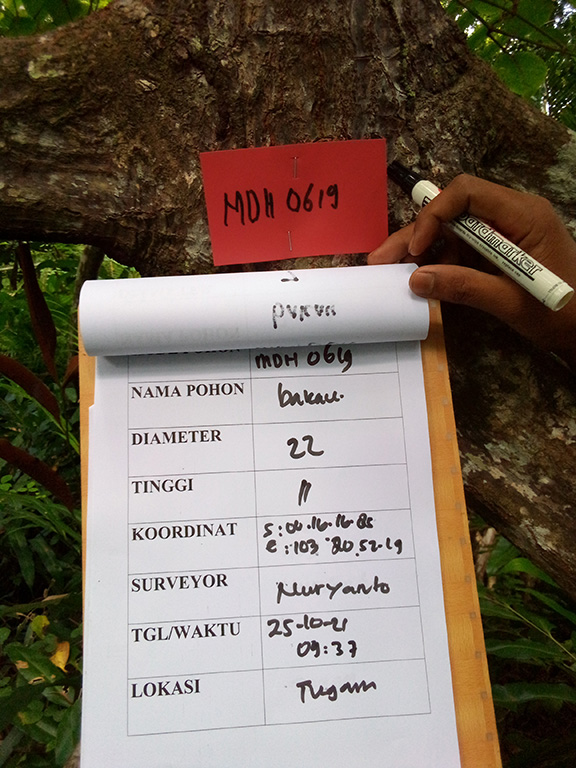 MDH 0619
Boardmarker
MDH 0619
NAMA POHON bakau.
DIAMETER 22
TINGGI 11
KOORDINAT S:04.16.16.85
e:103.20.52.19
SURVEYOR Nuryanto
TGL/WAKTU 25-10-21
09:37
LOKASI